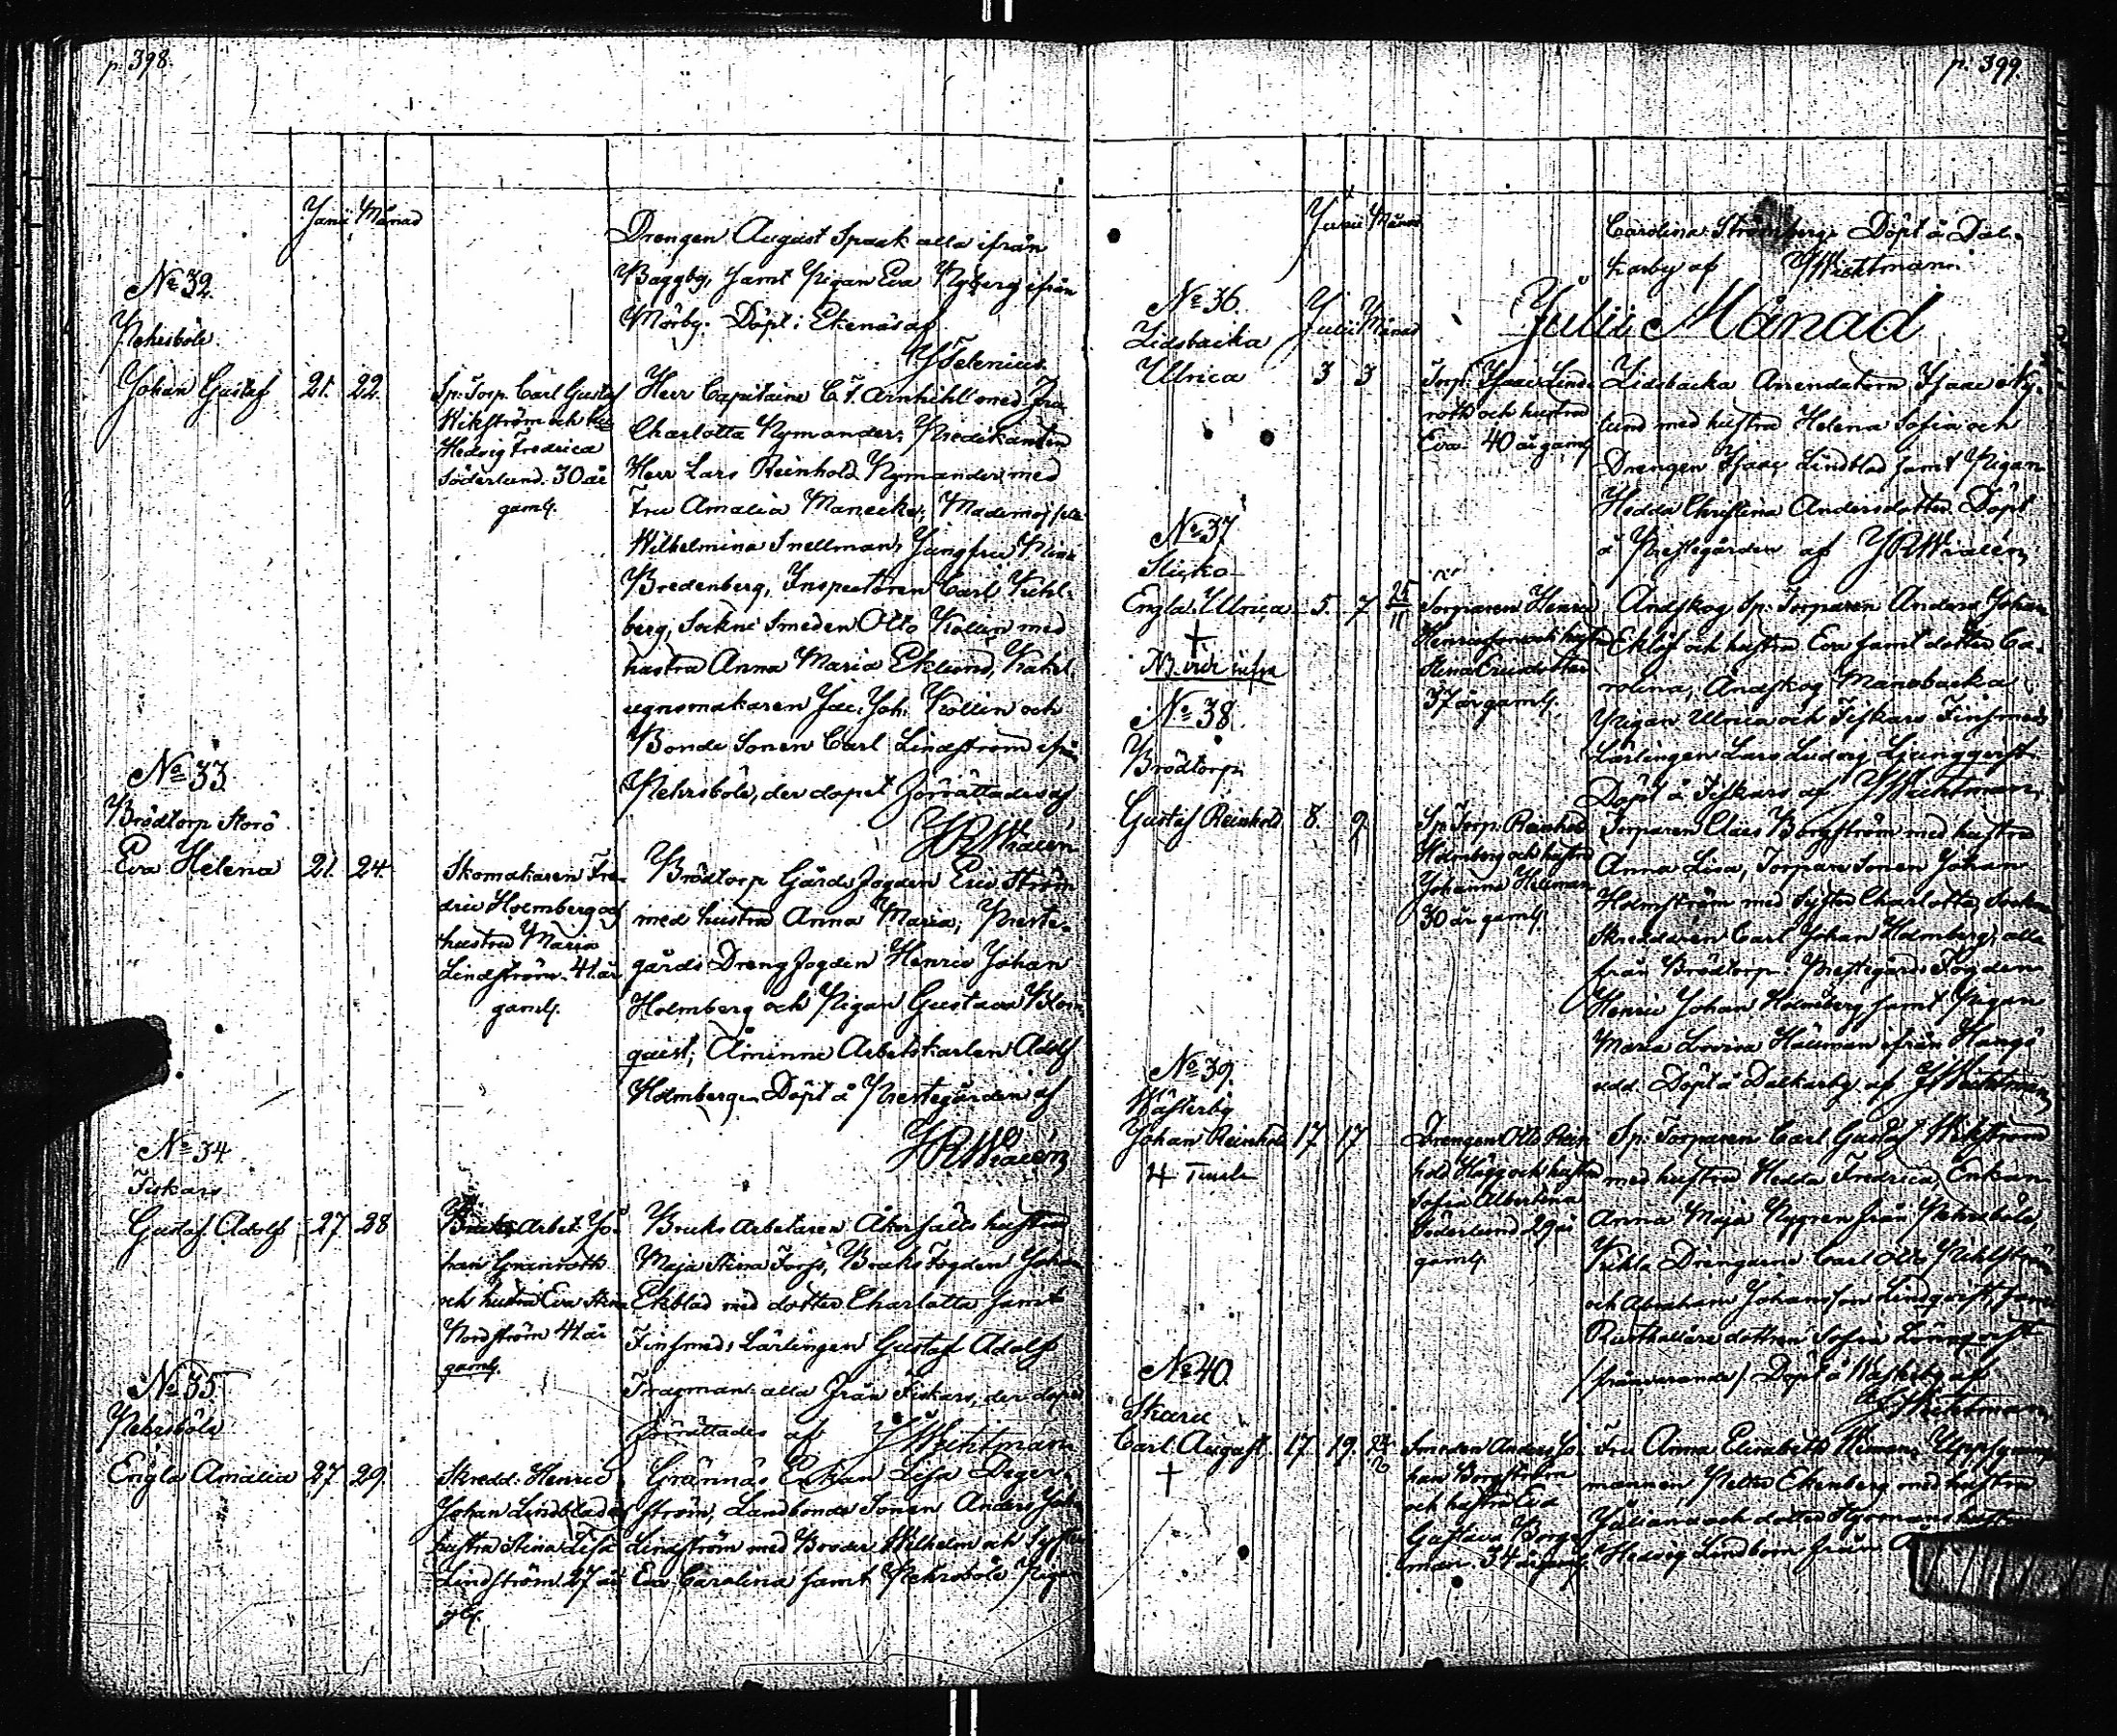 p. 398.
Junii Månad
Drengen August Spaak alla ifrån
Baggby, samt Pigan Eva Nyberg ifrån
Mörby. Döpt i Ekenäs af
Selenius.
No 32.
Pehrsböle
Johan Gustaf 21. 22.
Sp: Torp. Carl Gustaf
Wikström och
Hedvig Fredrica
Söderlund. 30 år
gaml.
Herr Capitaine C. F. Arnkihl med Fru
Charlotta Nymander, Predikanten
Herr Lars Reinhold Nymander med
Fru Amalia Manecke, Mademoiselle
Wilhelmina Snellman, Jungfru
Bredenberg, Inspectoren Carl Kihl-
berg, Sockne Smeden Otto Kollin med
hustru Anna Maria Eklund, Kakel
ugnsmakaren Jac: Joh: Kollin och
Bonde Sonen Carl Lindström ifrån
Pehrsböle, der dopet förrättades af
No 33.
Brödtorp Storö
Eva Helena 21. 24.
Skomakaren Fre-
dric Holmberg och
hustru Maria
Lindström. 41. år
gaml.
Brödtorp Gårds fogden Eric Ström
med hustru Anna Maria, Preste-
gårds Dreng fogden Henric Johan
Holmberg och Pigan Gustava Blom-
qvist, Åminne Arbetskarlen Adolf
Holmberg. Döpt å Prestegården af
No 34
Fiskars
Gustaf Adolf 27 28
Bruks Arbet. Jo-
han Granroth
och hustru Eva Stina
Nordström 41. år
gaml.
Bruks Arbetaren Åkerfälts hustru
Maja Stina Forss, Bruks Fogden Johan
Ekblad med dotter Charlotta samt
Finsmeds Lärlingen Gustaf Adolf
Tragman alla från Fiskars, der dopet
förrättades af Wichtman
No 35
Pehrsböle
Engla Amalia 27 29.
Skredd. Henric
Johan Lindblad och
hustru Stina Lisa
Lindström. 27 år
gl.
Grännäs Enkan Lisa Deger-
ström, Landbonde Sonen Anders Joh.
Lindström med Broder Wilhelm och Syster
Eva Carolina samt Pehrsböle Pigan
p. 399.
Junii Månad
Carolina Strömberg. Döpt å Dal-
karby af Wichtman.
Julii Månad
No 36.
Lidsbacka
Julii Månad
Ullrica 3 3
Torp. Isaac Lind-
roth och hustru
Eva 40 år gaml.
Lidsbacka Arrendatorn Isaac Ny-
lund med hustru Helena Sofia och
Drengen Isaac Lindblad samt Pigan
Hedda Christina Andersdotter. Döpt
å Prestegården af
No 37
Engla Ullrica 5. 7 25/11
†
NB. vid: infra
Torparen Henric
Henricsson och hustru
Stina Ericsdotter
37 år gaml.
Andskog Sp: Torparen Anders Johan
Eklöf och hustru Eva samt dotter Ca-
rolina, Andskog Mansbacka
Pigan Ulrica och Fiskars Finsmeds
Lärlingen Lars Ludvig Ljungqvist.
Döpt å Fiskars af Wichtman.
No 38.
Brödtorp
Gustaf Reinhold 8. 9.
Sp: Torp: Reinhold
Holmberg och hustru
Johanna Hellman
30 år gaml.
Torparen Claes Borgström med hustru
Anna Lisa, Torpare Sonen Johan
Holmström med Syster Charlotta, Sockne
Skreddaren Carl Johan Holmberg, alla
från Brödtorp. Prestegårds Fogden
Henric Johan Holmberg samt Pigan
Maria Lovisa Hällman ifrån Hangö
udd. Döpt å Dalkarby af Wichtman
No 39.
Wästerby
Johan Reinhold 17 17
Drengen Otto Rein-
hold Hägg och hustru
Sofia Albertina
Söderlund 29 år
gaml.
Sp: Torparen Carl Gustaf Wikström
med hustru Hedda Fredrica, Enkan
Anna Maja Nygren från Pehrsböle,
Drengarne Carl Otto
och Abraham Johansson Lindqvist, samt
Rusthållare dottren Sofia Lönnqvist
(frånvarande) Döpt å Wästerby af
Wichtman
No 40.
Skuru
Carl August. 17. 19.
†
Smeden Anders Jo-
han Borgström
och hustru Eva
Gustava Borg-
man. 34 år gaml.
Fru Anna Elisabeth Wiman, Uppsynings-
mannen Petter Ekenberg med hustru
Juliana och dotter Styrmans hustru
Hedvig Lindbom från